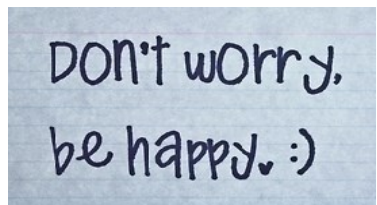 Don't worry,
be happy. :)